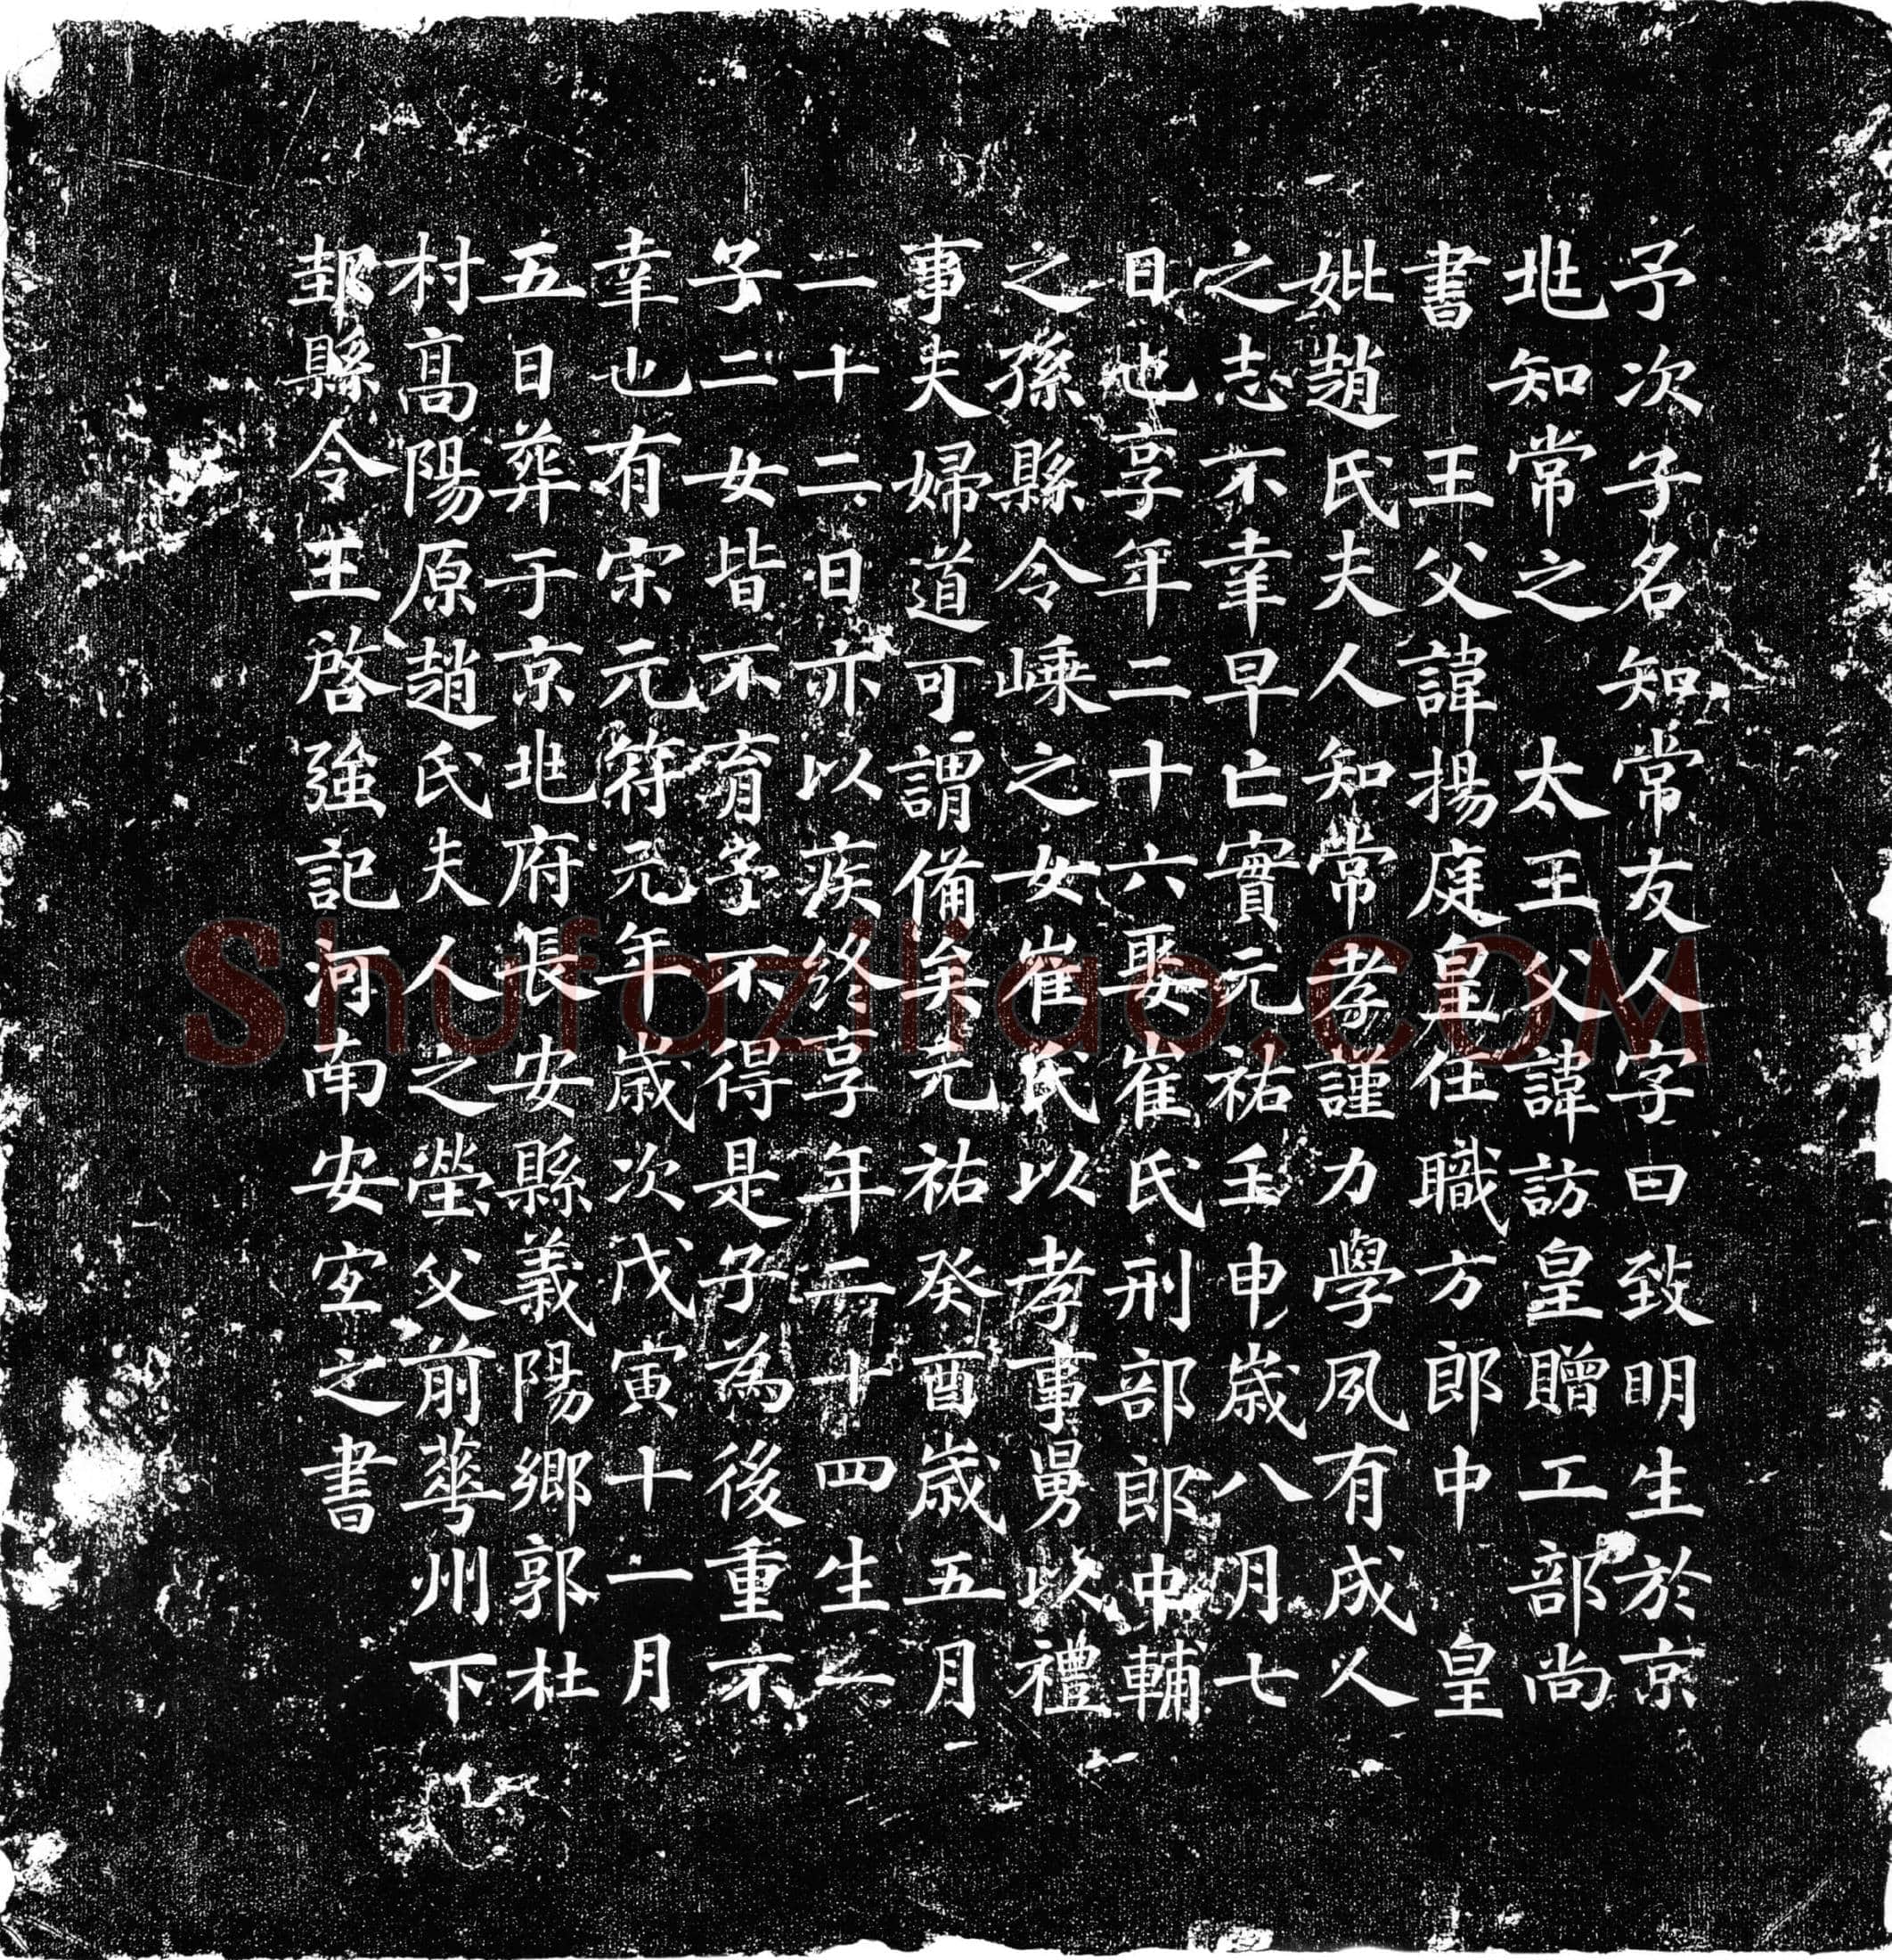 予次子名知常友人字曰致明生於京
兆知常之 太王父諱訪皇贈工部尚
書 王父諱揚庭皇任職方郎中 皇
妣趙氏夫人知常孝謹力學夙有成人
之志不幸早亡實元祐壬申歲八月七
日也享年二十六娶崔氏刑部郎中輔
之孫縣令嵊之女崔氏以孝事舅以禮
事夫婦道可謂備矣元祐癸酉歲五月
二十二日亦以疾終享年二十四生二
子二女皆不育予不得是子為後重不
幸也有宋元符元年歲次戊寅十一月
五日葬于京兆府長安縣義陽鄉郭杜
村高陽原趙氏夫人之塋父前華州下
邽縣令王啓強記河南安宓之書
Shufaziliao.COM